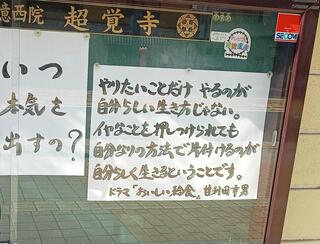 憶西院 超覚寺
SECOM
いつ
本気を
出すの?
やりたいことだけ やるのが
自分らしい生き方じゃない。
イヤなことを押しつけられても
自分なりの方法で片付けるのが
自分らしく生きるということです。
ドラマ「おいしい給食」甘利田幸男